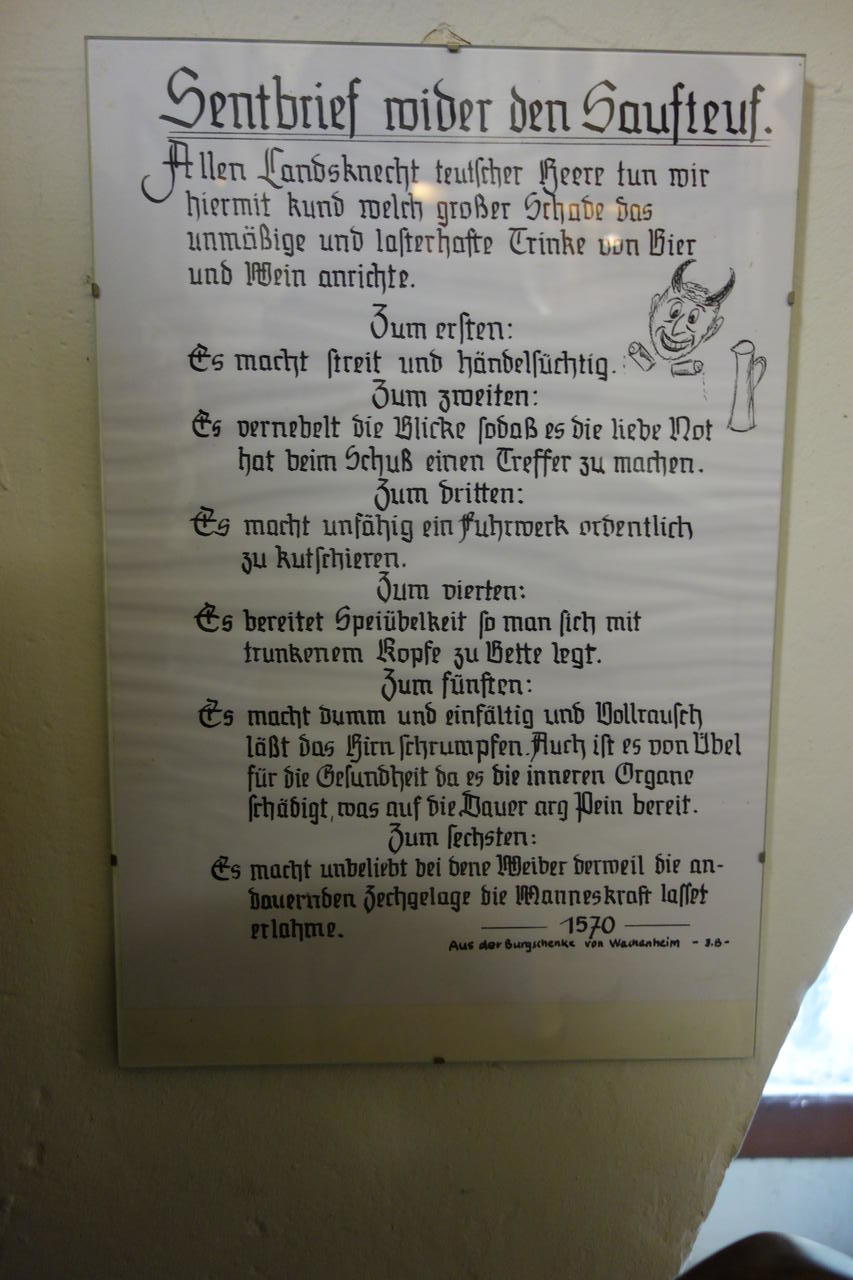 Sentbrief wider den Saufteuf.
Allen Landsknecht teutscher Heere tun wir
hiermit kund welch großer Schade das
unmäßige und lasterhafte Trinke von Bier
und Wein anrichte.
Zum ersten:
Es macht streit und händelsüchtig.
Zum zweiten:
Es vernebelt die Blicke sodaß es die liebe Not
hat beim Schuß einen Treffer zu machen.
Zum dritten:
Es macht unfähig ein Fuhrwerk ordentlich
zu kutschieren.
Zum vierten:
Es bereitet Speiübelkeit so man sich mit
trunkenem Kopfe zu Bette legt.
Zum fünften:
Es macht dumm und einfältig und Vollrausch
läßt das Hirn schrumpfen. Auch ist es von Übel
für die Gesundheit da es die inneren Organe
schädigt, was auf die Dauer arg Pein bereit.
Zum sechsten:
Es macht unbeliebt bei dene Weiber derweil die an-
dauernden Zechgelage die Manneskraft lasset
erlahme.
1570
Aus der Burgschenke von Wachenheim - J.B-